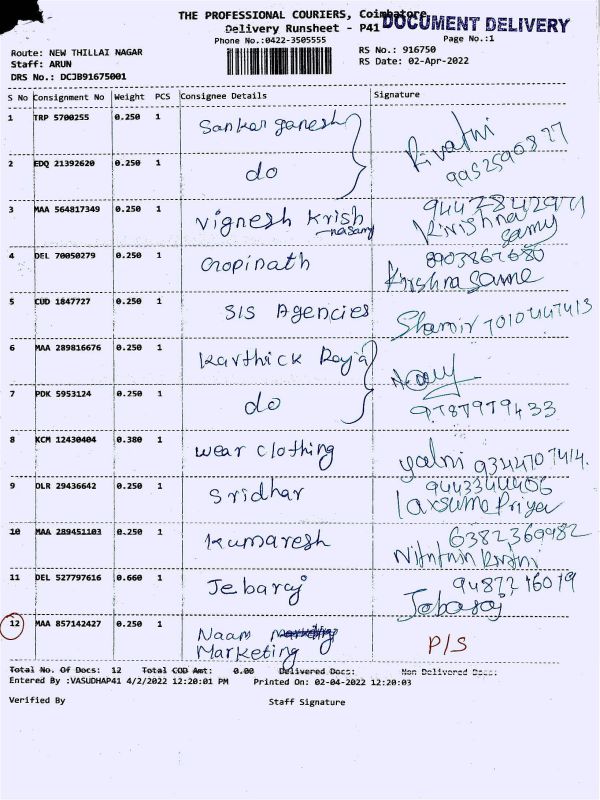 THE PROFESSIONAL COURIERS, Coimbatore
DOCUMENT DELIVERY
Delivery Runsheet - P41
Phone No.:0422-3505555
Page No.:1
Route: NEW THILLAI NAGAR
RS No.: 916750
Staff: ARUN
RS Date: 02-Apr-2022
DRS No.: DCJB91675001
S No Consignment No Weight PCS Consignee Details Signature
1 TRP 5700255 0.250 1 Sankar ganesh
2 EDQ 21392620 0.250 1 do
3 MAA 564817349 0.250 1 Vignesh Krish
-nasamy
4 DEL 70050279 0.250 1 Gopinath 8903867680
Krishna
5 CUD 1847727 0.250 1 SIS Agencies
6 MAA 289816676 0.250 1 Karthick Raja
7 PDK 5953124 0.250 1 do 9787979433
8 KCM 12430404 0.380 1 wear clothing 9344707414.
9 DLR 29436642 0.250 1 Sridhar
10 MAA 289451103 0.250 1 Kumaresh 6382369982
11 DEL 527797616 0.660 1 Jebaraj 9487216019
12 MAA 857142427 0.250 1 Naam
Marketing P/S
Total No. Of Docs: 12 Total COD Amt: 0.00 Delivered Docs: Non Delivered Docs:
Entered By :VASUDHAP41 4/2/2022 12:20:01 PM Printed On: 02-04-2022 12:20:03
Verified By Staff Signature